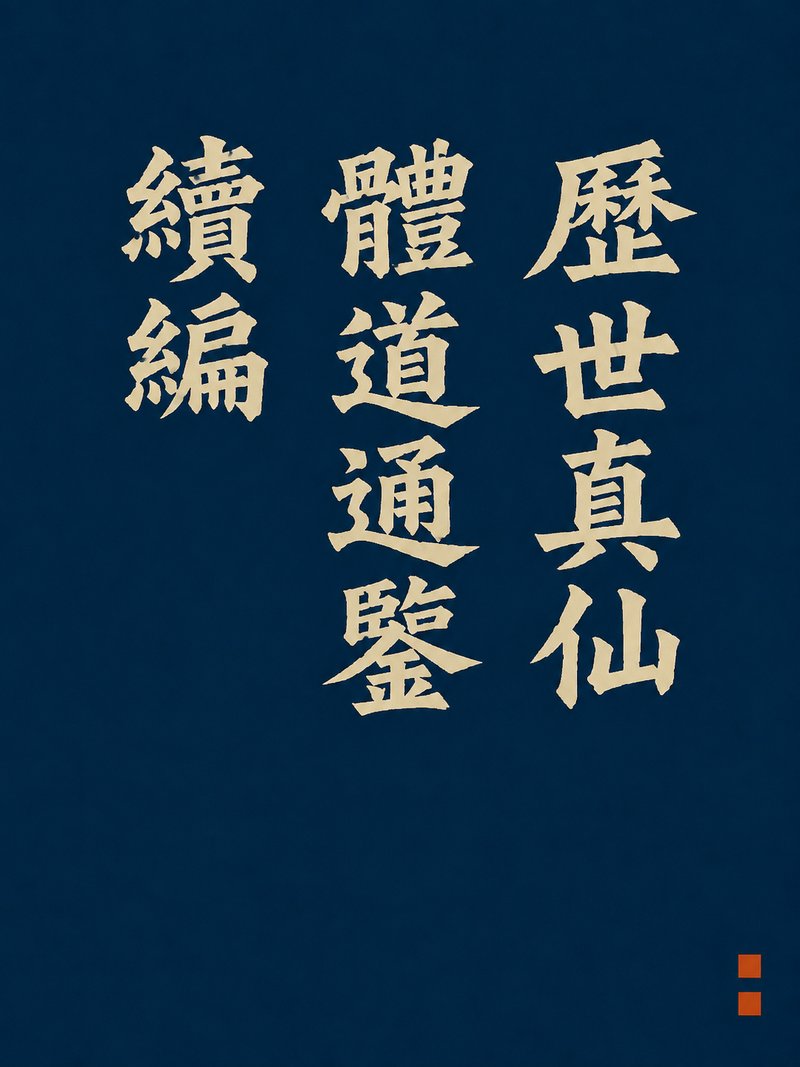 歷世真仙
體道通鑒
續編